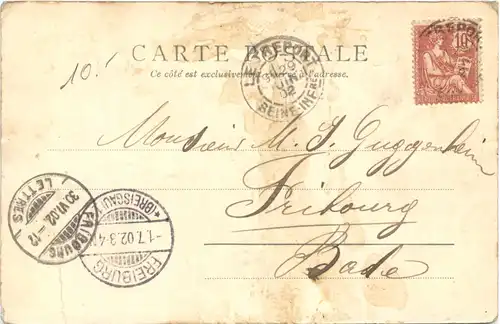 CARTE POSTALE
Ce côté est exclusivement réservé à l'adresse.
10.
LE TREPORT
29
JUIN
02
SEINE-INFRE
TREPORT
10
Monsieur M. S. Guggenheim
Fribourg
Bade
FRIBOURG
30.VI.02.-12
LETTRES
* (BREISGAU) *
-1.7.02.3-4N
FREIBURG